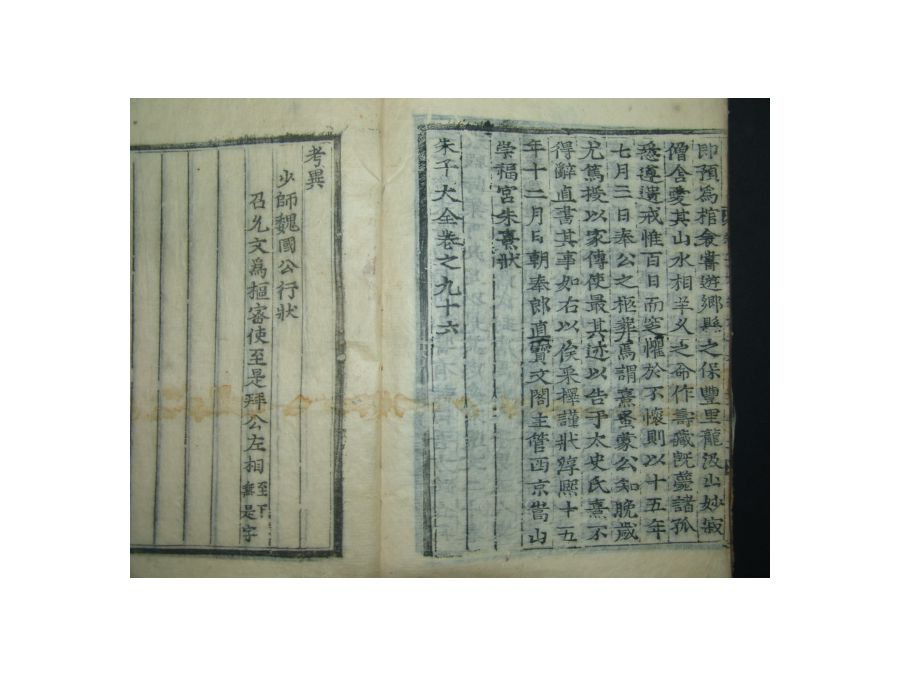 即預為棺歛嘗遊鄉縣之保豐里龍汲山妙寂
僧舍愛其山水相羊乂之命作壽藏旣薨諸孤
悉遵遺戒惟百日而窆懼於不懷則以十五年
七月二日奉公之柩葬焉謂熹蚤蒙公知晚歲
尤篤授以家傳使最其述以告于太史氏熹不
得辭直書其事如右以俟采擇謹狀淳熙十五
年十二月日朝奉郎直寶文閣主管西京嵩山
崇福宮朱熹狀
朱子大全卷之九十六
考異
少師魏國公行狀
召允文爲樞密使至是拜公左相至下無是字